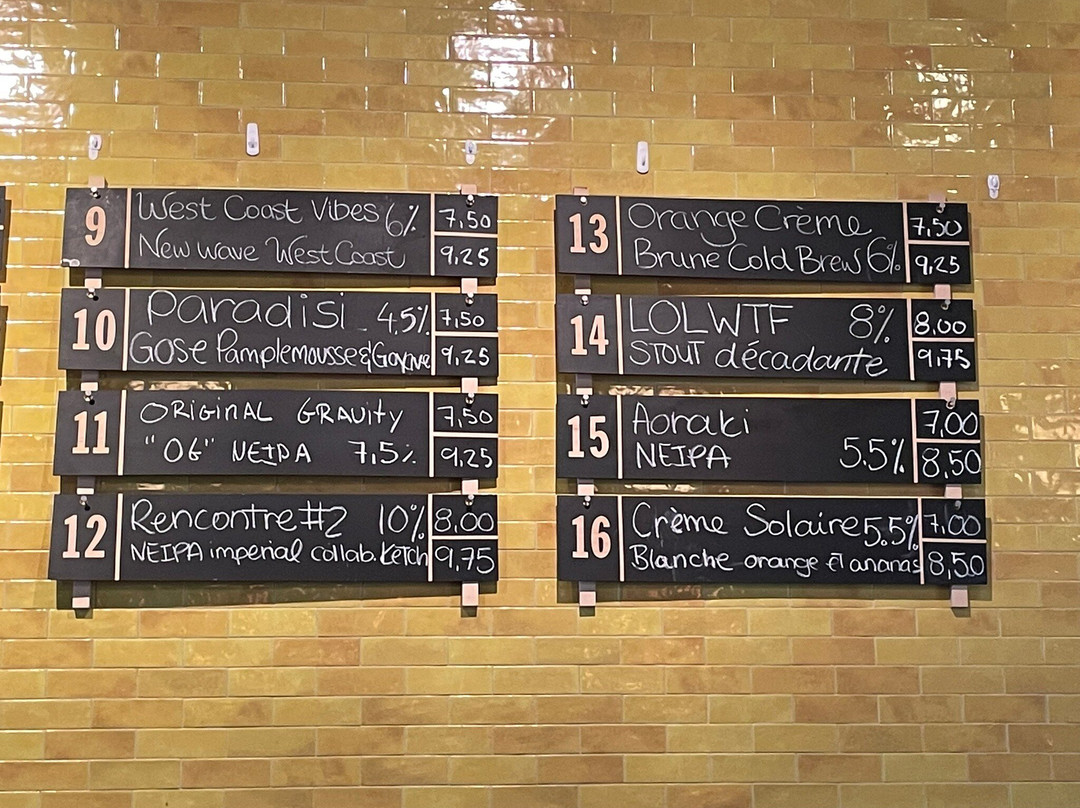 9 West Coast Vibes 6% 7,50
New wave West Coast 9,25
10 Paradisi 4.5% 7,50
GOSE Pamplemousse & Goyave 9,25
11 ORiGinAL GRAViTy 7,50
"OG" NEIPA 7,5% 9,25
12 Rencontre #2 10% 8,00
NEIPA imperial collab. Ketch 9,75
13 Orange Crème 7,50
Brune Cold Brew 6% 9,25
14 LOLWTF 8% 8,00
STOUT décadante 9,75
15 Aoraki 7,00
NEIPA 5.5% 8,50
16 Crème Solaire 5.5% 7,00
Blanche orange et ananas 8,50